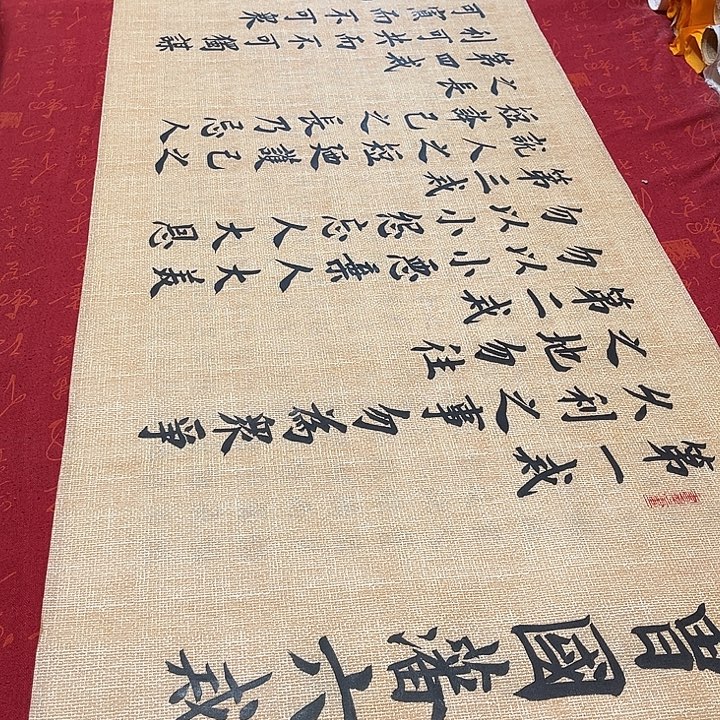 曾國藩六戒
第一戒
久利之事勿為眾爭
之地勿往
第二戒
勿以小惡棄人大義
勿以小怨忘人大恩
第三戒
說人之短廼護己之
短誇己之長乃忌人
之長
第四戒
利可共而不可獨謀
可寡而不可眾